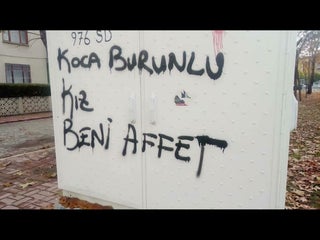 976 SD
KOCA BURUNLU
KIZ
BENİ AFFET